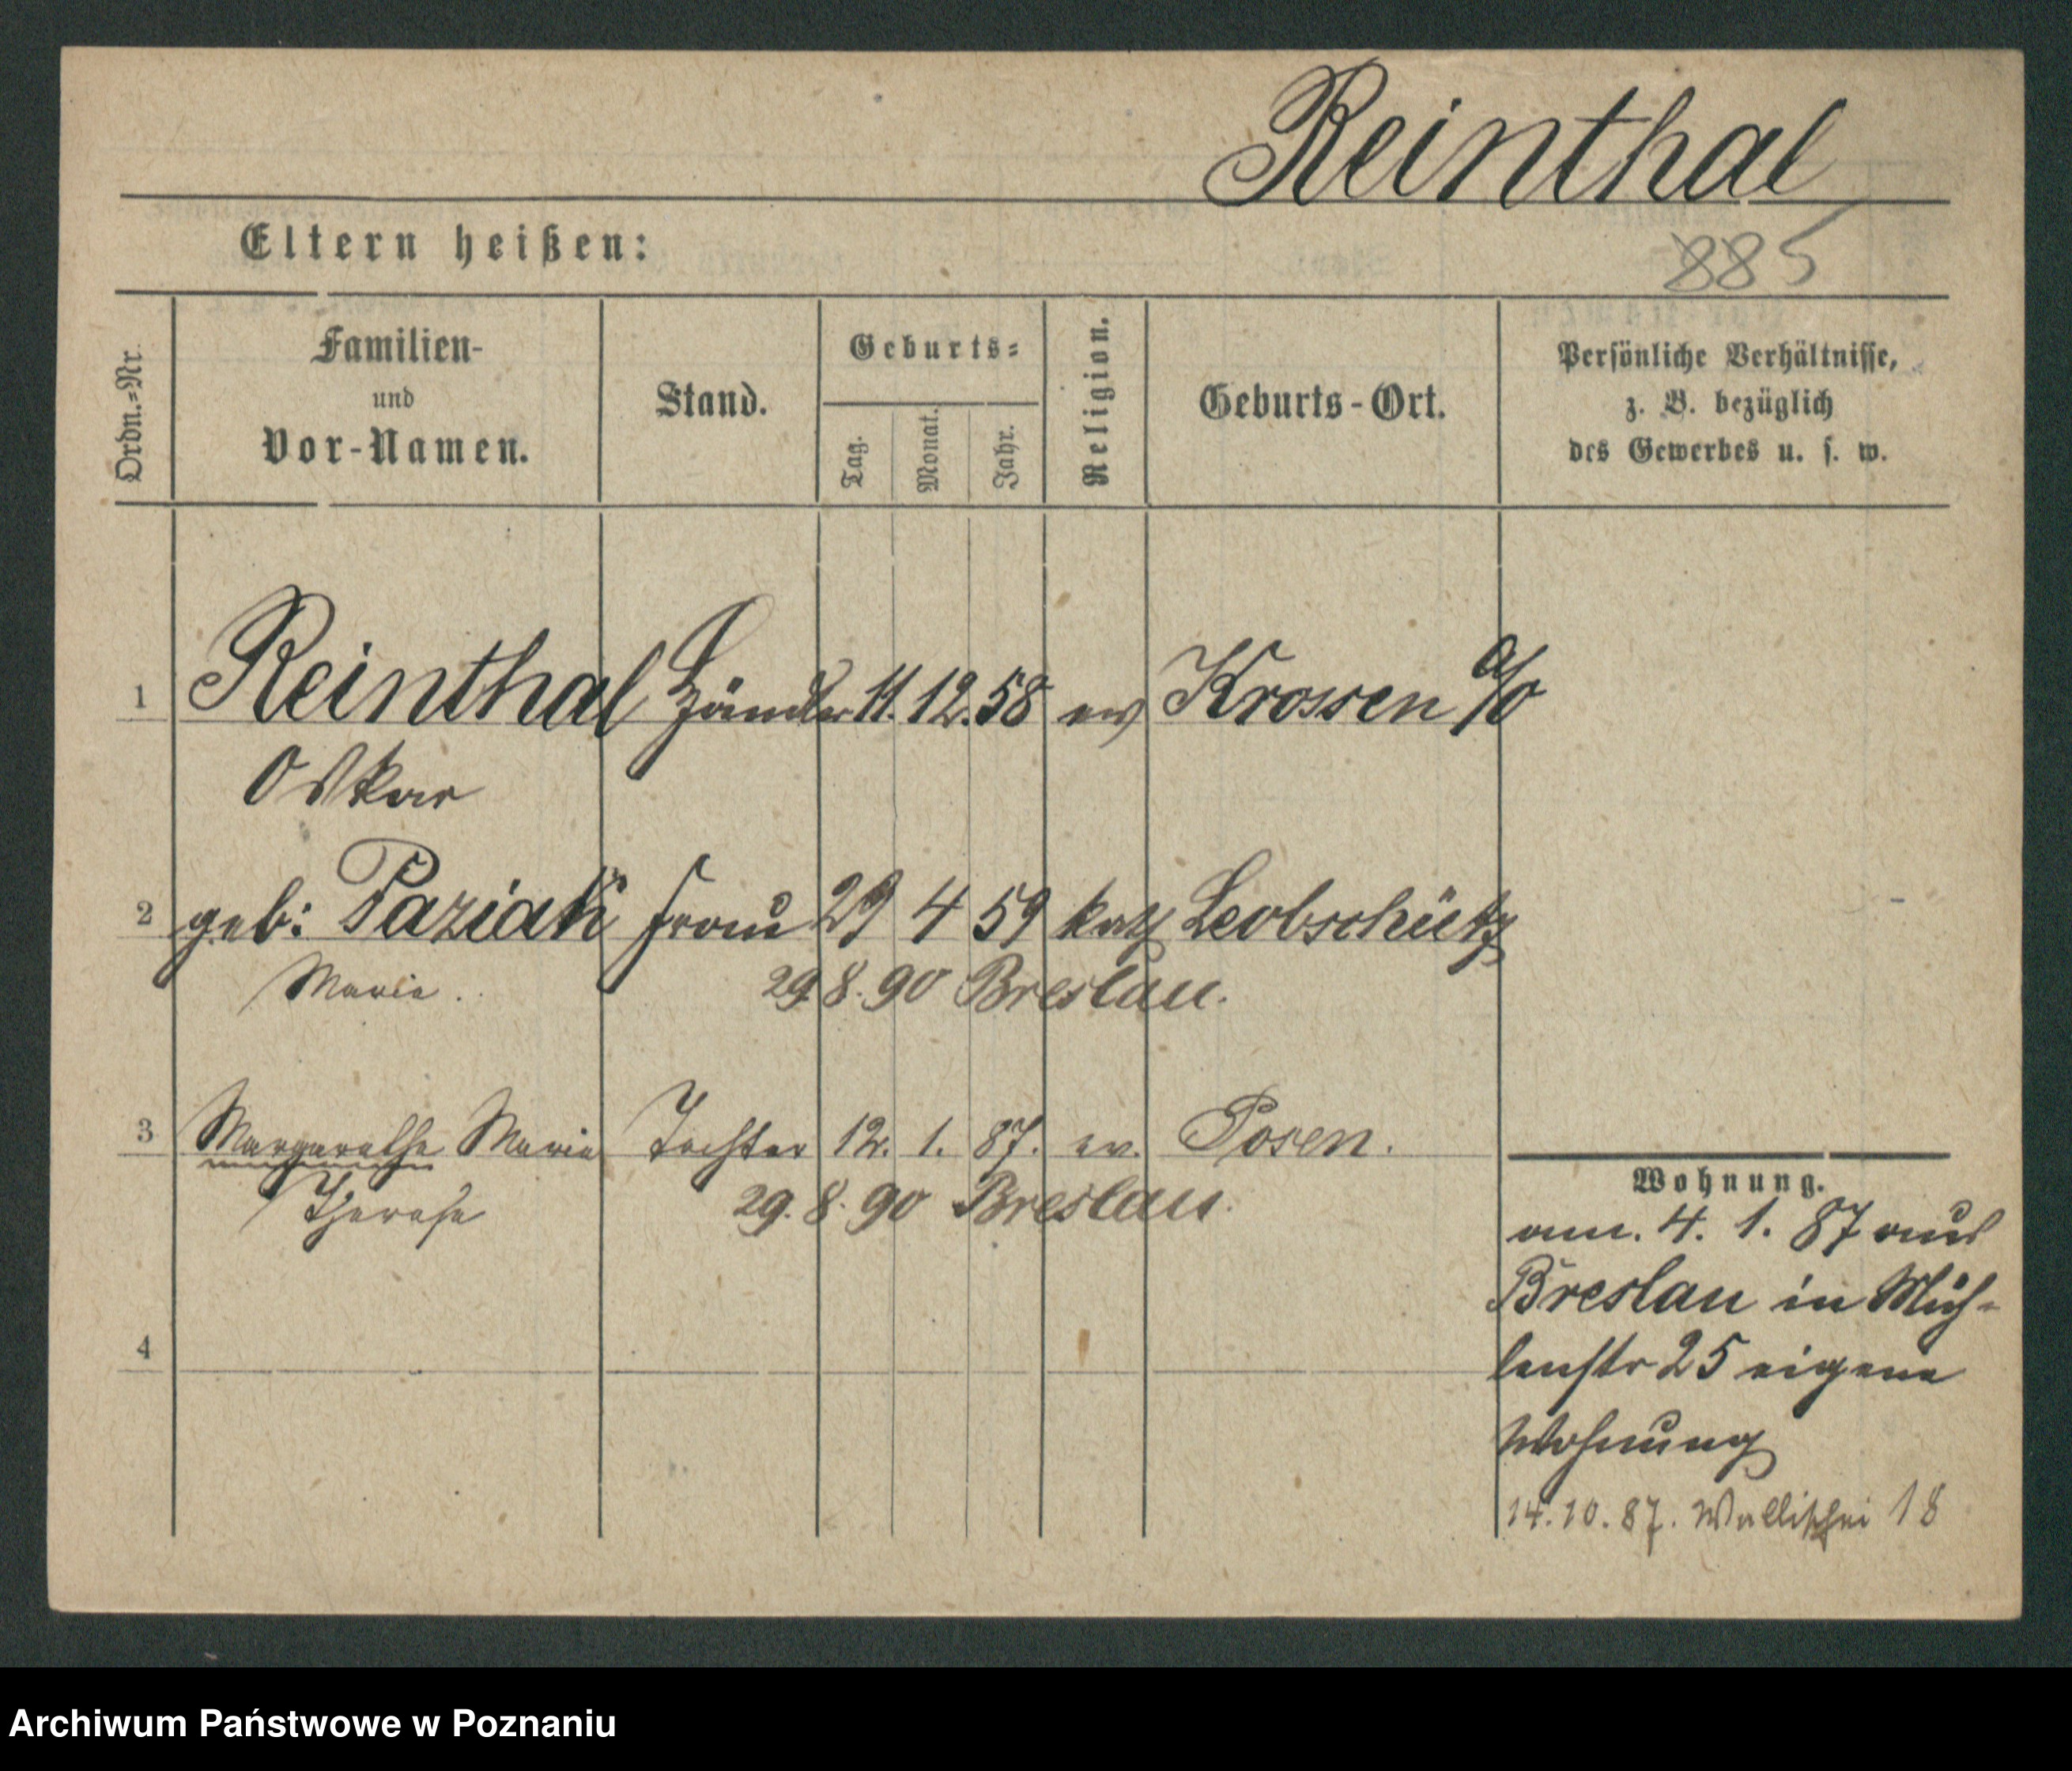 Reinthal
885
Eltern heißen:
Ordn.=Nr.
Familien-
und
Vor-Namen.
Stand.
Geburts=
Tag.
Monat.
Jahr.
Religion.
Geburts-Ort.
Persönliche Verhältnisse,
z. B. bezüglich
des Gewerbes u. s. w.
1 Reinthal Händler 11. 12. 58 ev Krossen a/O
Oskar
2 geb: Paziak Frau 29 4 59 kath Leobschütz
Maria.
29.8.90 Breslau.
3 Margarethe Maria Tochter 12. 1. 87. ev. Posen.
Therese
29.8.90 Breslau.
4
Wohnung.
am. 4. 1. 87 aus
Breslau in Müh-
lenstr 25 eigene
Wohnung
14.10.87. Wallischei 18
Archiwum Państwowe w Poznaniu